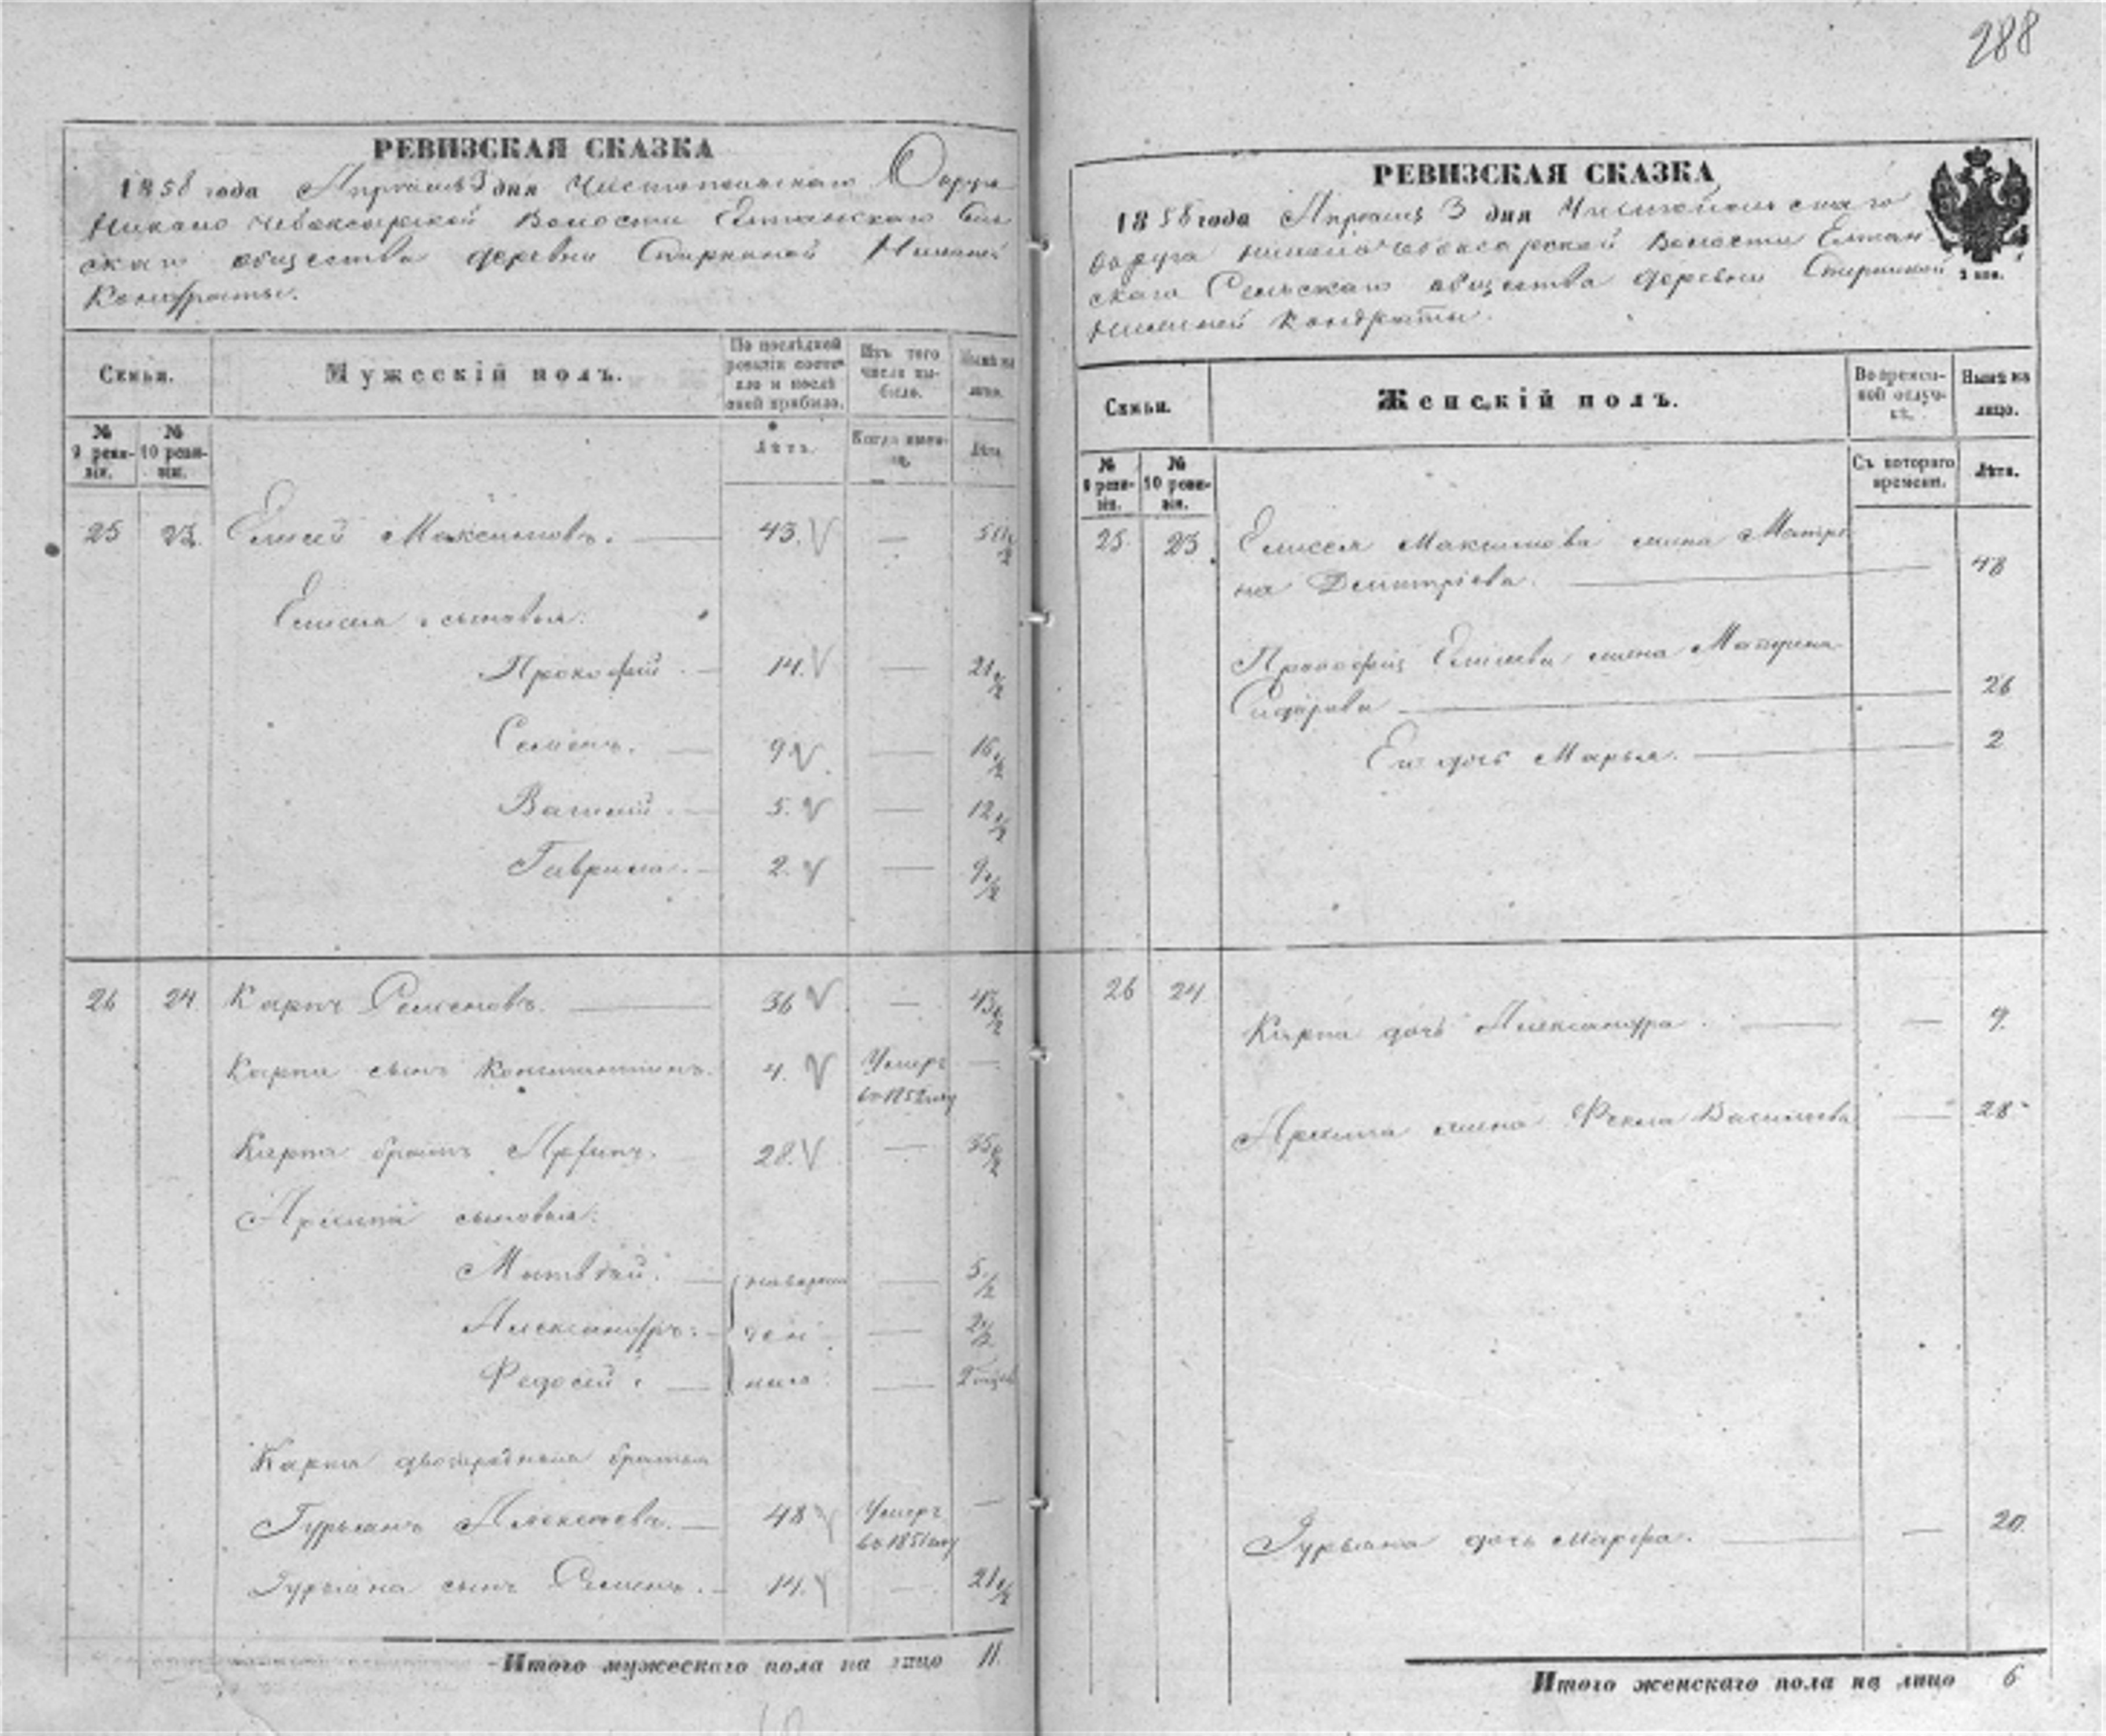 288
РЕВИЗСКАЯ СКАЗКА
1858 года Апреля 3 дня Чистопольскаго Округа
Николо Чебоксарской Волости Елтанскаго Сель
скаго общества деревни Нижней
Кондраты.
Семьи.
Мужескій полъ.
По послѣдней ревизіи состояло и послѣ оной прибыло.
Изъ того числа выбыло.
Нынѣ на лицо.
№ 9 ревизіи.
№ 10 ревизіи.
Лѣтъ.
Когда именно.
Лѣта.
25 23 Елисей Максимовъ. 43. — 50 1/2
Елисея сыновья:
Прокофей 14. — 21 1/2
Семенъ. 9 — 16 1/2
Василій 5. — 12 1/2
Гаврила. 2. — 9 1/2
26 24. Карпъ Семеновъ. 36 — 43 1/2
Карпа сынъ Константинъ. 4. Умеръ —
въ 1852 году
Карпа братъ Архипъ. 28. — 35 1/2
Архипа сыновья:
Матвѣй. новорож — 5 1/2
Александръ. ден — 2 1/2
Федосей. ные —
Карпа двоюродные братья
Гурьянъ Алексѣевъ. 48 Умеръ —
въ 1851 году
Гурьяна сынъ Семенъ. 14. — 21 1/2
Итого мужескаго пола на лицо 11.
РЕВИЗСКАЯ СКАЗКА
1858 года Апреля 3 дня Чистопольскаго
Округа Николо Чебоксарской Волости Елтан
скаго Сельскаго общества деревни
Нижней Кондраты.
Семьи.
Женскій полъ.
Во временной отлучкѣ.
Нынѣ на лицо.
№ 9 ревизіи.
№ 10 ревизіи.
Съ котораго времени.
Лѣта.
25. 23 Елисея Максимова жена Матре
на Дмитріева. 48
Прокофья Елисеева жена
Сидорова 26
Ея дочь Марья. 2
26 24 Карпа дочь Александра. — 9.
Архипа жена Фекла Васильева — 28
Гурьяна дочь Марфа. — 20.
Итого женскаго пола на лицо 6